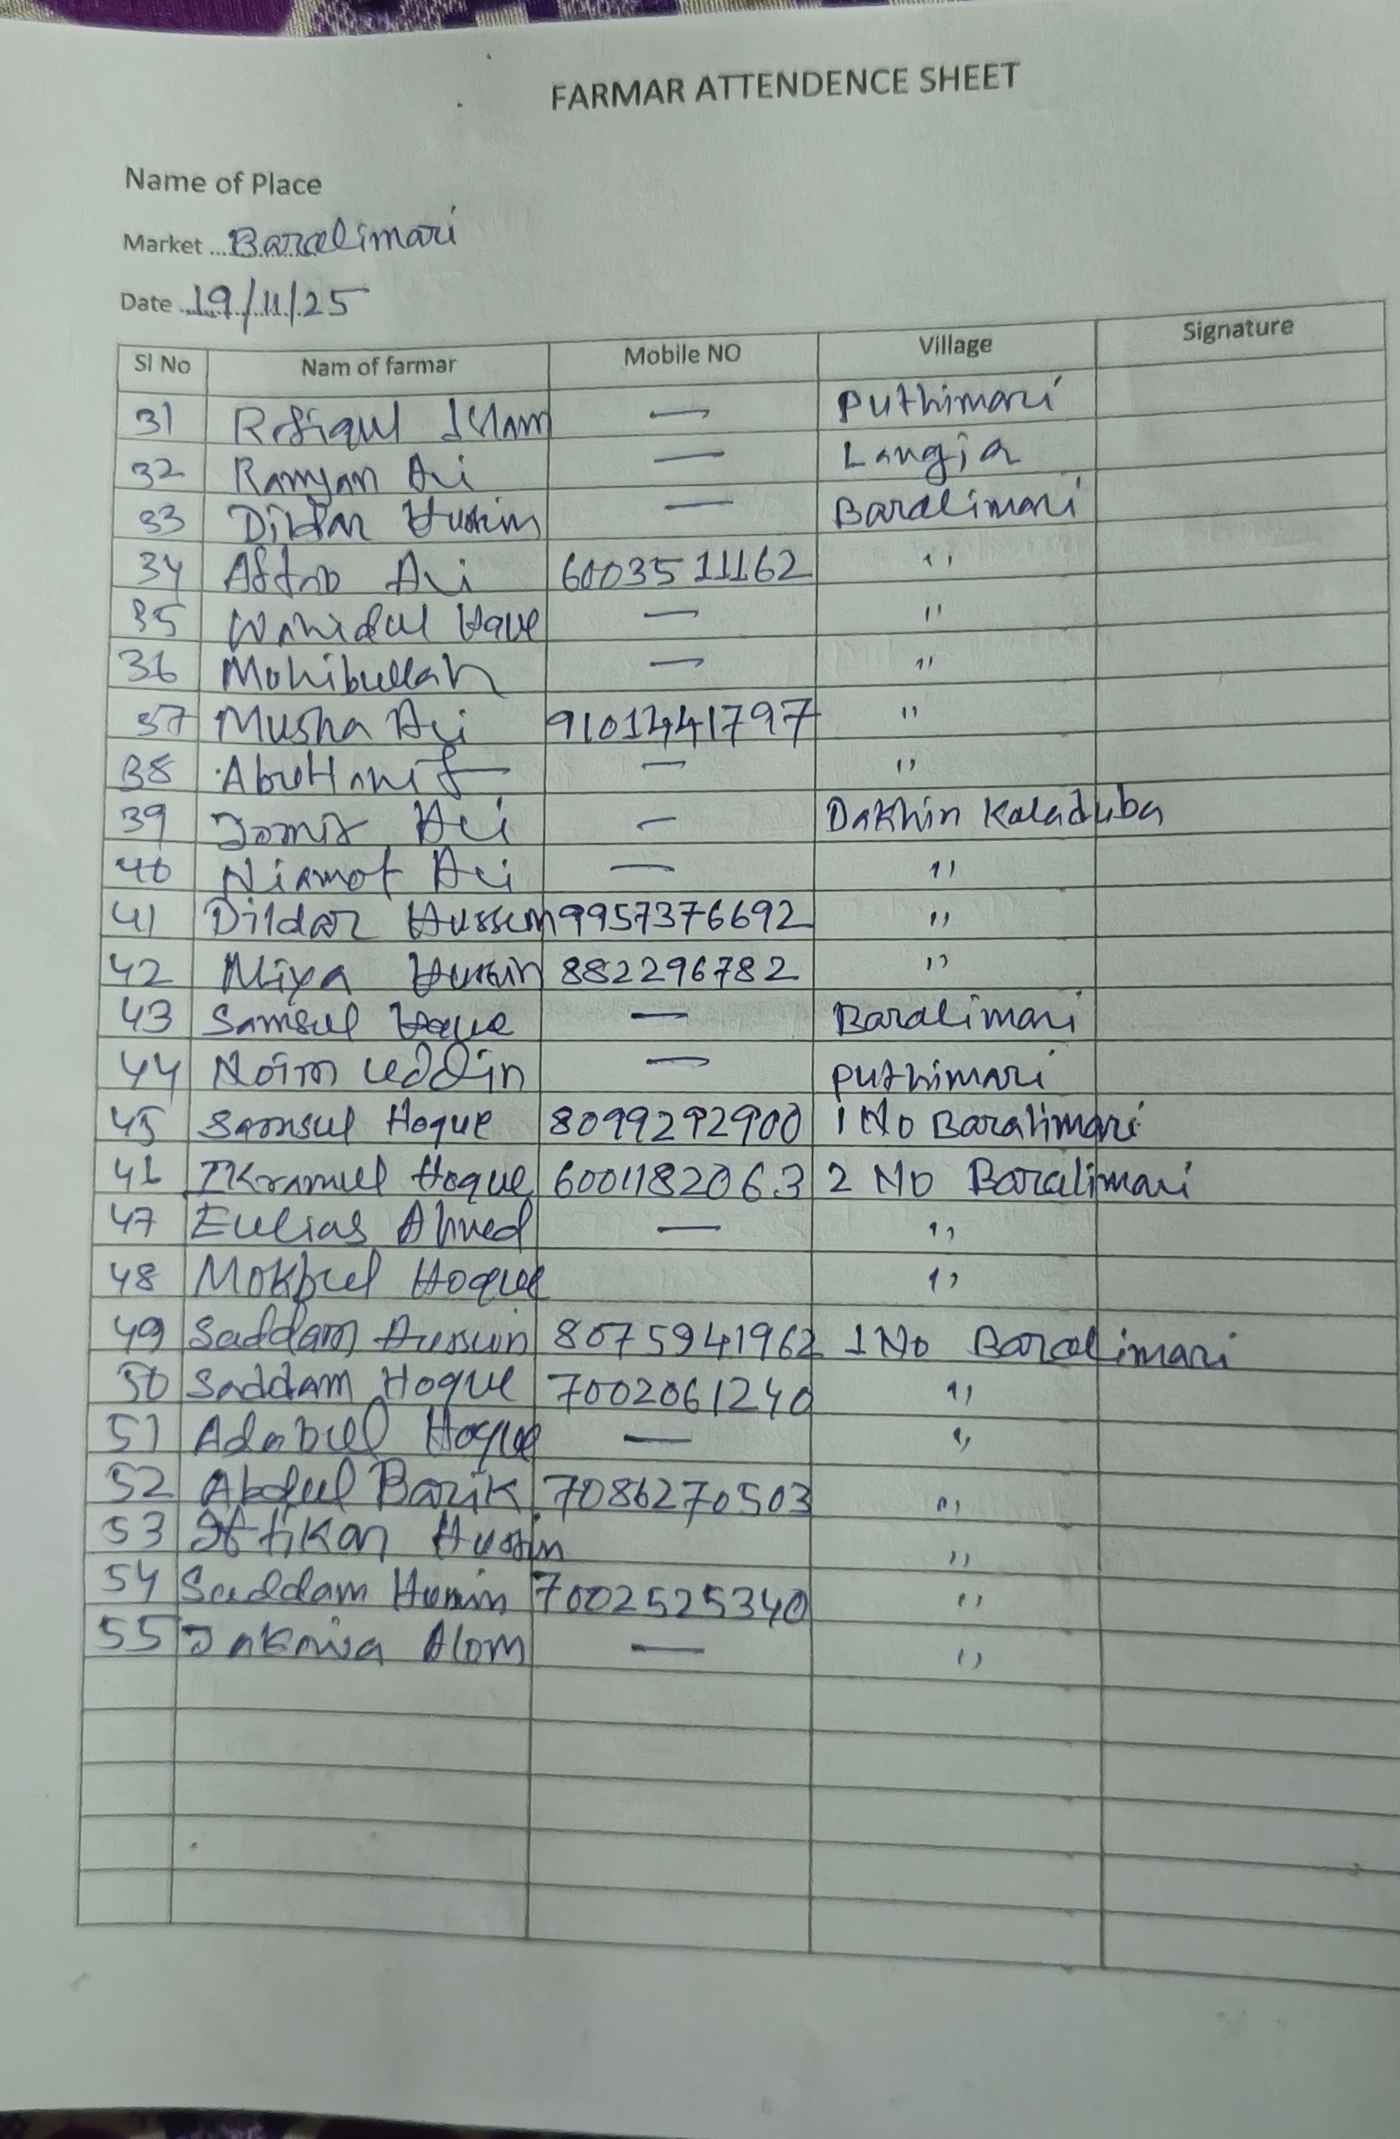 FARMAR ATTENDENCE SHEET
Name of Place
Market ... Baralimari
Date ... 19/11/25
Sl No Nam of farmar Mobile NO Village Signature
31 Rafiqul Islam — Puthimari
32 Ramjan Ali — Langja
33 Dildar Hussin — Baralimari
34 Aftab Ali 6003511162 "
35 Wahidul Haque — "
36 Mohibullah — "
37 Musha Ali 9101441797 "
38 Abu Hanif — "
39 Ali — Dakhin Kaladuba
40 Niamot Ali — "
41 Dildar Hussen 9957376692 "
42 Miya Hussin 882296782 "
43 Samsul Haque — Baralimari
44 Noim uddin — Puthimari
45 Samsul Hoque 8099292900 1 No Baralimari
46 Ikramul Hoque 6001182063 2 No Baralimari
47 Eulias Ahmed — "
48 Mokbul Hoque "
49 Saddam Hussin 8075941962 1 No Baralimari
50 Saddam Hoque 7002061240 "
51 Adabul Hoque — "
52 Abdul Barik 7086270503 "
53 Iftikar Hussin "
54 Saddam Hussin 7002525340 "
55 Alom — "